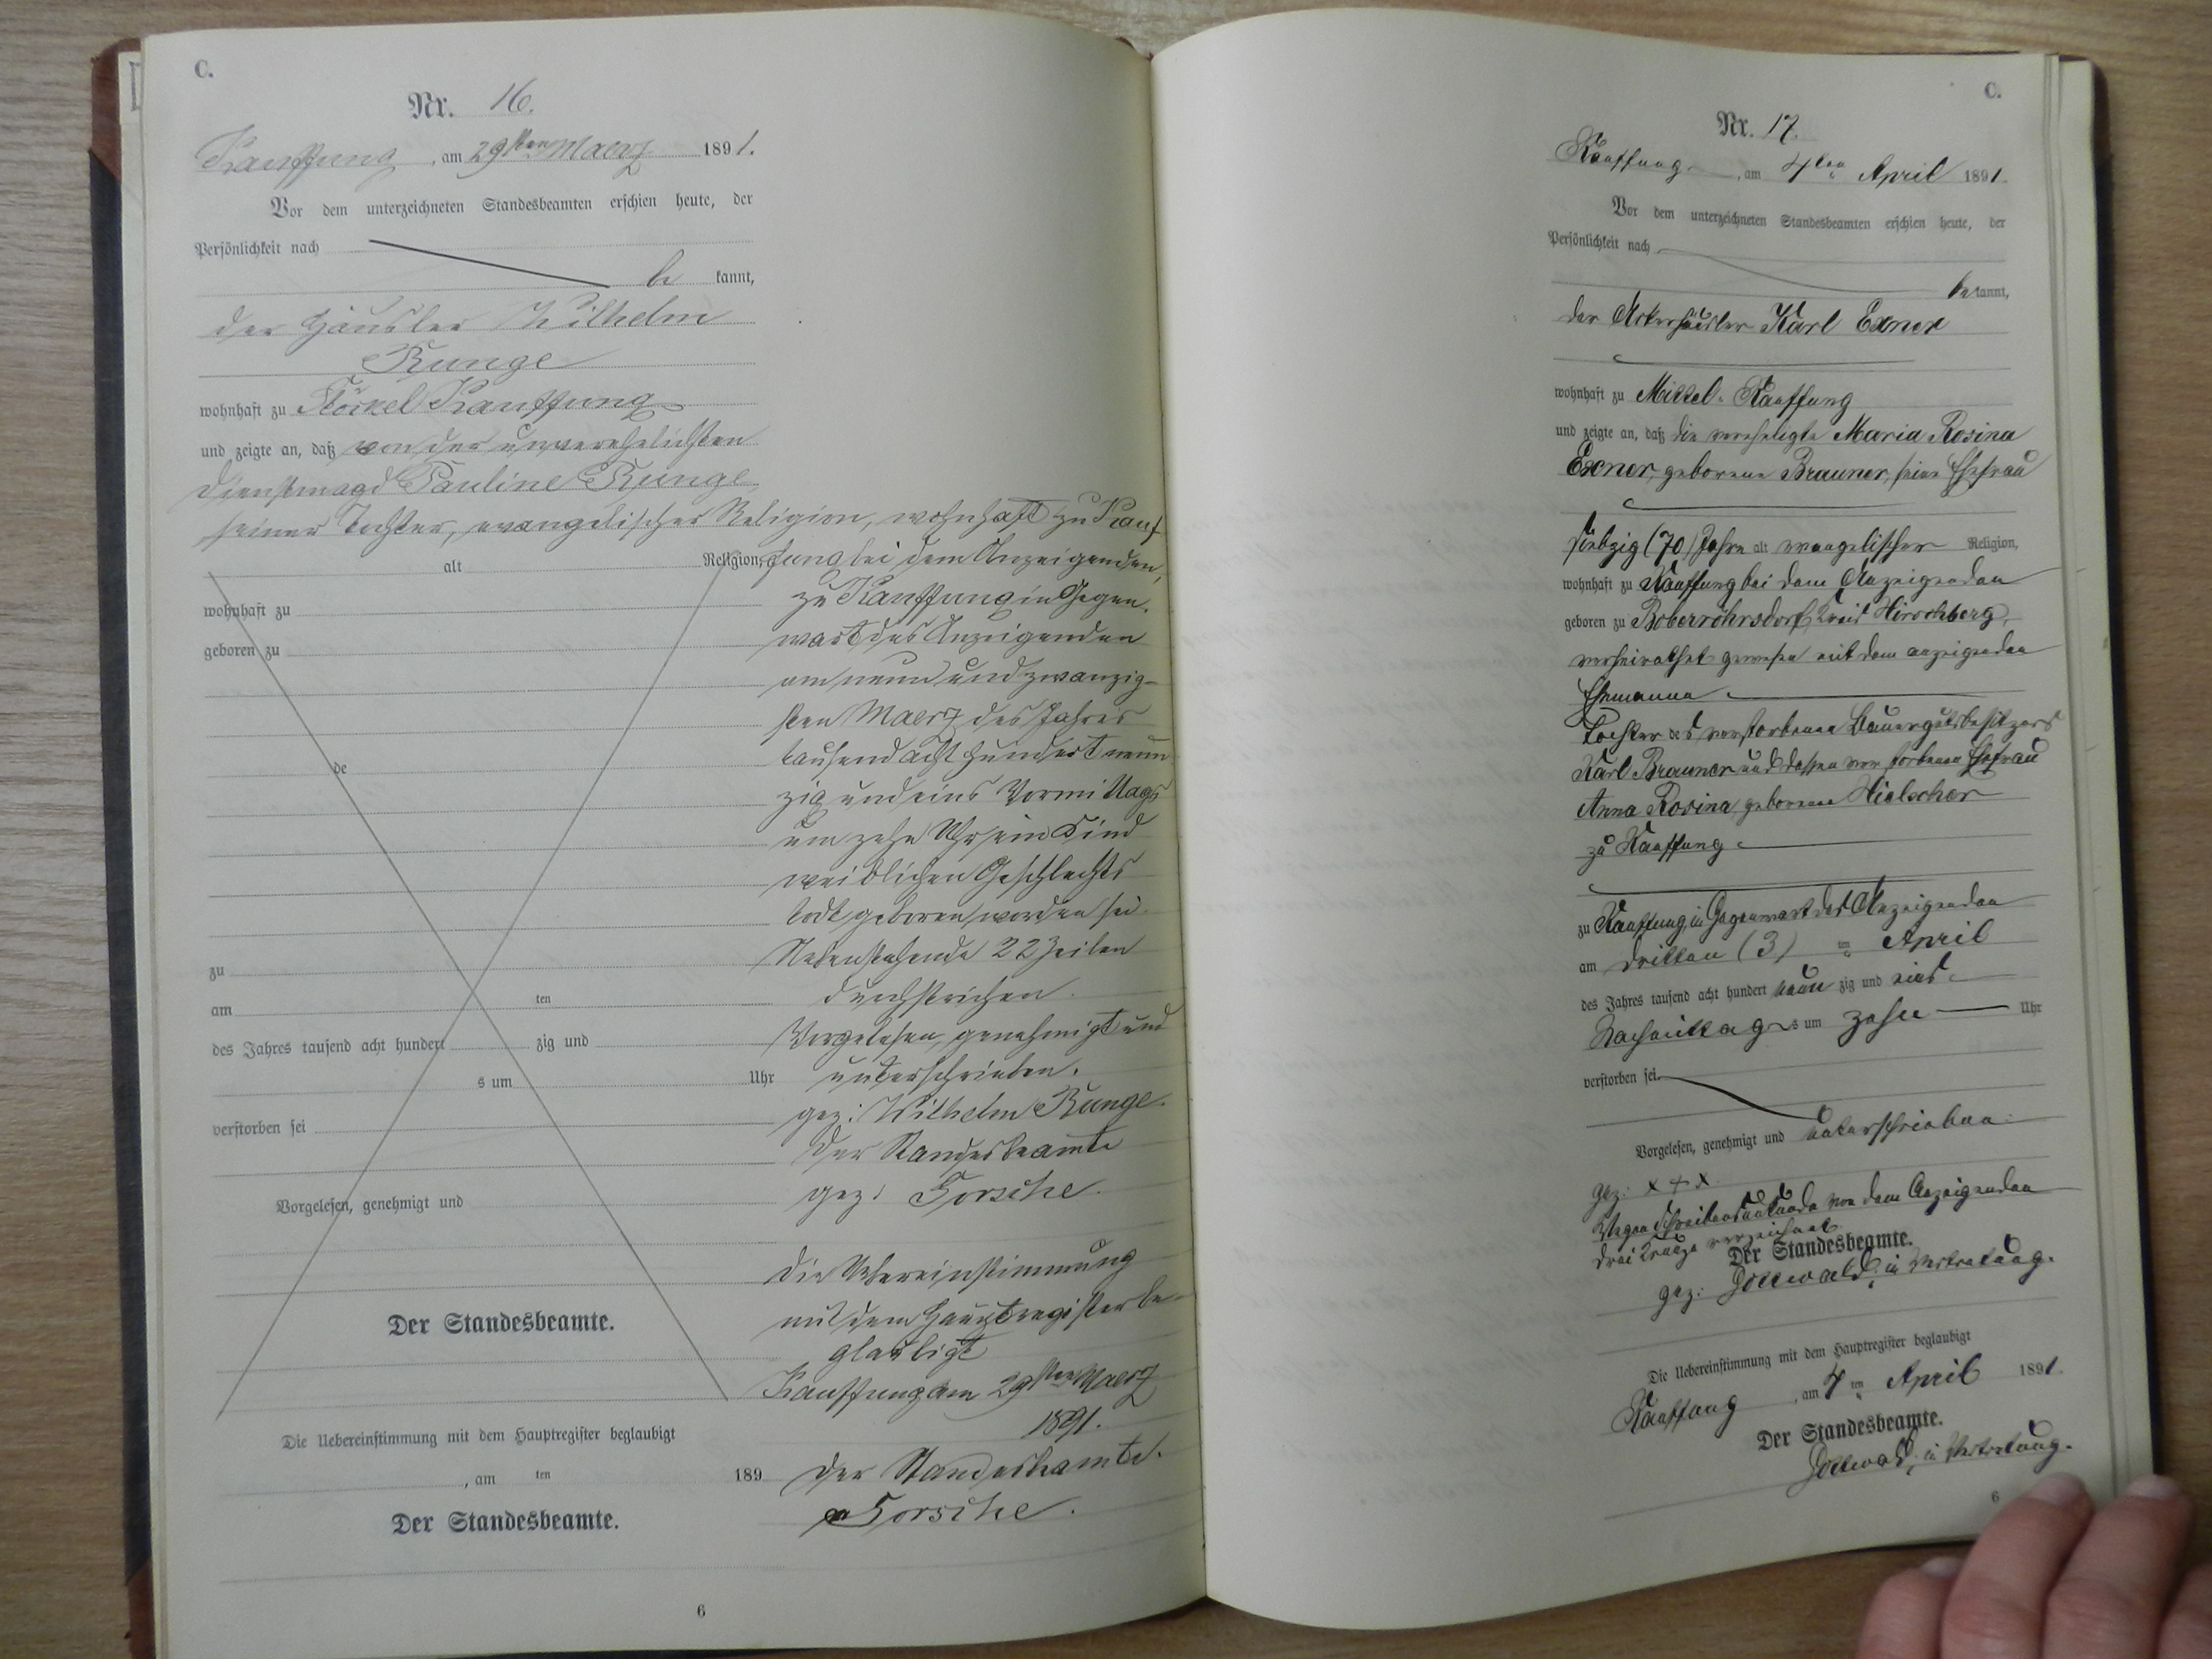 C.
Nr. 16.
Kauffung, am 29sten Maerz 1891.
Vor dem unterzeichneten Standesbeamten erschien heute, der
Persönlichkeit nach
be kannt,
der Häusler Wilhelm
Runge
wohnhaft zu Röckel Kauffung
und zeigte an, daß von der unverehelichten
Dienstmagd Pauline Runge,
seiner Tochter, evangelischer Religion, wohnhaft zu Kauf
alt Religion, fung bei dem Anzeigenden,
wohnhaft zu zu Kauffung in Gegen-
geboren zu wart des Anzeigenden
am neun und zwanzig-
sten Maerz des Jahres
de tausend acht hundert neun
zig und eins Vormittags
um zehn Uhr ein Kind
weiblichen Geschlechts
todt geboren worden sei.
zu Nebenstehende 22 Zeilen
am ten durchstrichen.
des Jahres tausend acht hundert zig und Vorgelesen, genehmigt und
s um Uhr unterschrieben.
verstorben sei gez: Wilhelm Runge.
Der Standesbeamte
Vorgelesen, genehmigt und gez: Forsche.
Die Uebereinstimmung
Der Standesbeamte. mit dem Hauptregister be-
glaubigt
Kauffung am 29sten Maerz
Die Uebereinstimmung mit dem Hauptregister beglaubigt 1891.
, am ten 189 Der Standesbeamte.
Der Standesbeamte. Forsche.
6
C.
Nr. 17.
Kauffung, am 4ten April 1891.
Vor dem unterzeichneten Standesbeamten erschien heute, der
Persönlichkeit nach
bekannt,
der Ackerhäusler Karl Exner
wohnhaft zu Mittel-Kauffung
und zeigte an, daß die verehelichte Maria Rosina
Exner, geborene Brauner, seine Ehefrau
siebzig (70) Jahre alt evangelischer Religion,
wohnhaft zu Kauffung bei dem Anzeigenden
geboren zu Boberröhrsdorf, Kreis Hirschberg,
verheirathet gewesen mit dem anzeigenden
Ehemanne
Tochter des verstorbenen Bauergutsbesitzers
Karl Brauner und dessen verstorbenen Ehefrau
Anna Rosina geborene Hielscher
zu Kauffung
zu Kauffung in Gegenwart des Anzeigenden
am dritten (3) ten April
des Jahres tausend acht hundert neun zig und eins
Nachmittags um zehn Uhr
verstorben sei.
Vorgelesen, genehmigt und unterschrieben.
gez: x + x.
Wegen Schreibensunkunde von dem Anzeigenden
drei Kreuze verzeichnet.
Der Standesbeamte.
gez: Gottwald, in Vertretung.
Die Uebereinstimmung mit dem Hauptregister beglaubigt
Kauffung, am 4 ten April 1891.
Der Standesbeamte.
Gottwald, in Vertretung.
6